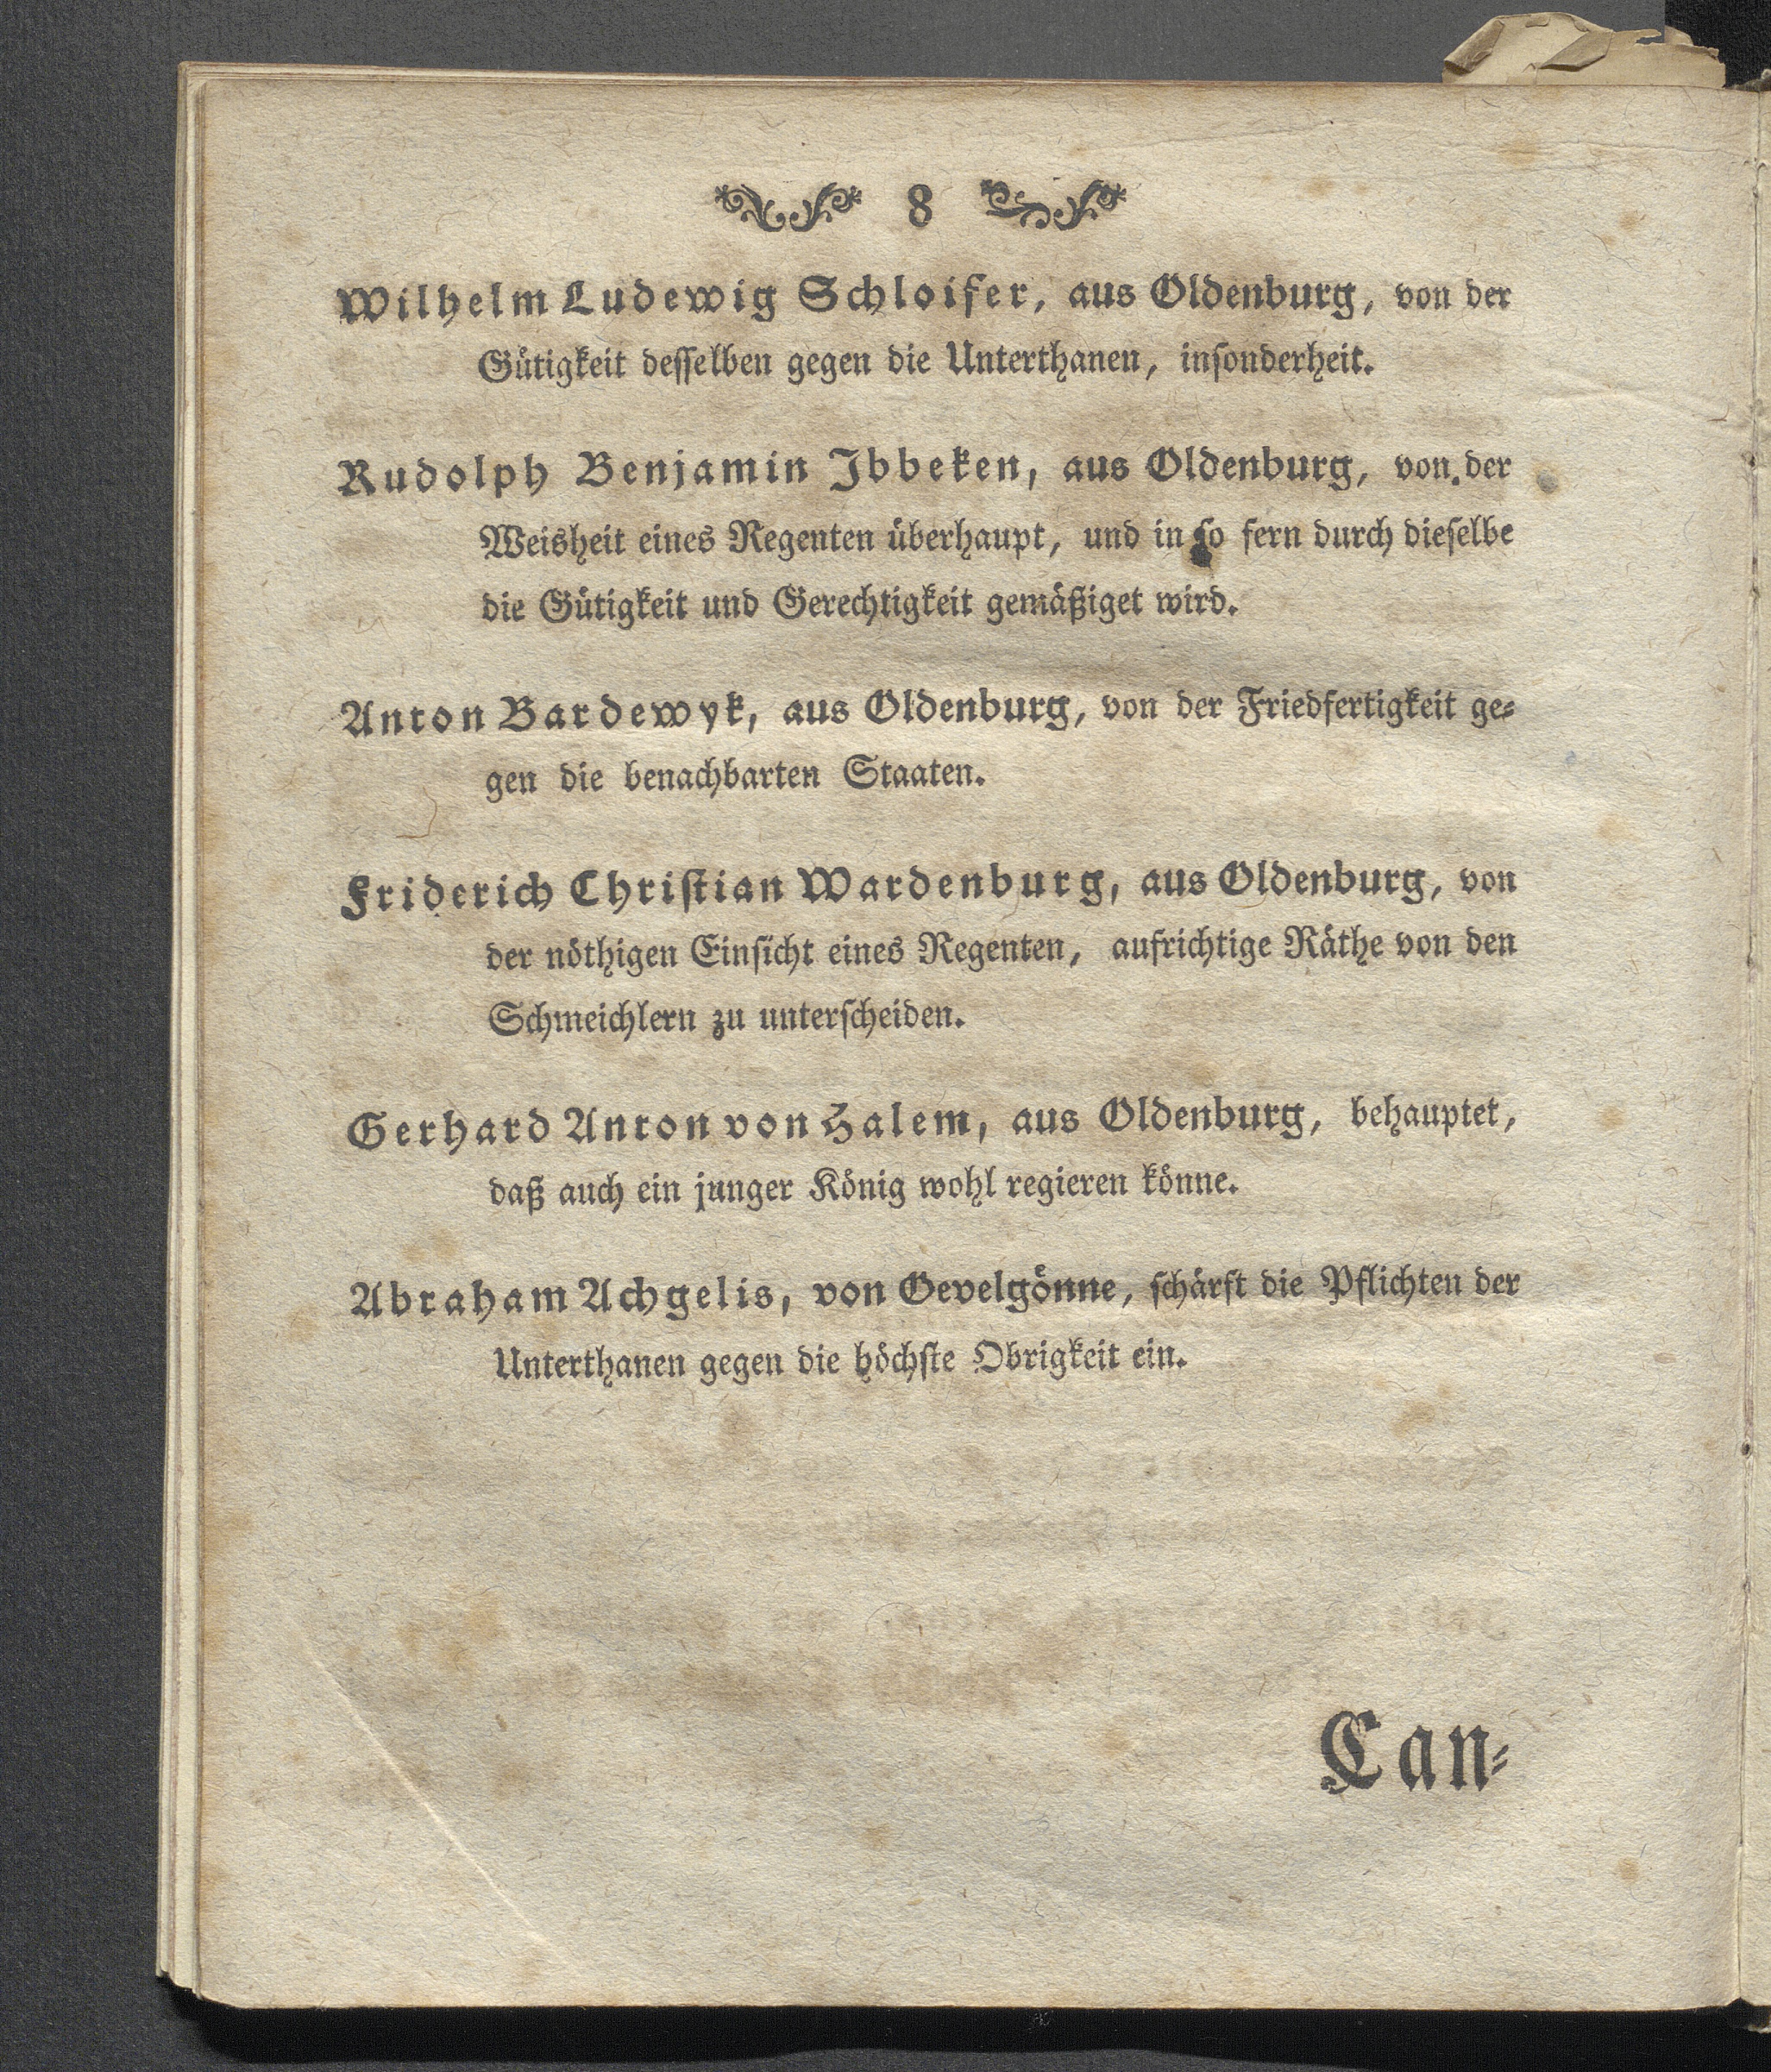 8
Wilhelm Ludewig Schloifer, aus Oldenburg, von der
Gütigkeit desselben gegen die Unterthanen, insonderheit.
Rudolph Benjamin Ibbeken, aus Oldenburg, von der
Weisheit eines Regenten überhaupt, und in so fern durch dieselbe
die Gütigkeit und Gerechtigkeit gemäßiget wird.
Anton Bardewyk, aus Oldenburg, von der Friedfertigkeit ge-
gen die benachbarten Staaten.
Friderich Christian Wardenburg, aus Oldenburg, von
der nöthigen Einsicht eines Regenten, aufrichtige Räthe von den
Schmeichlern zu unterscheiden.
Gerhard Anton von Halem, aus Oldenburg, behauptet,
daß auch ein junger König wohl regieren könne.
Abraham Achgelis, von Oevelgönne, schärft die Pflichten der
Unterthanen gegen die höchste Obrigkeit ein.
Can-